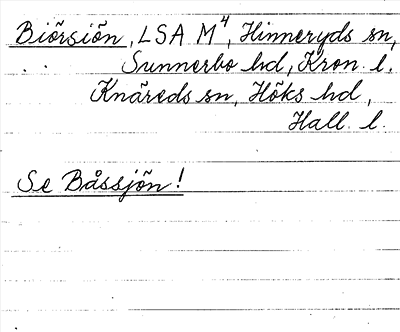 Biörsiön, LSA M⁴, Hinneryds sn,
Sunnerbo hd, Kron. l.
Knäreds sn, Höks hd,
Hall. l.
Se Båssjön!